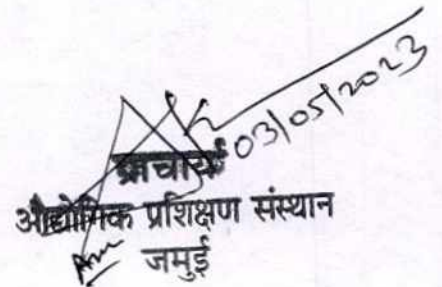 03/05/2023
प्राचार्य
औद्योगिक प्रशिक्षण संस्थान
जमुई